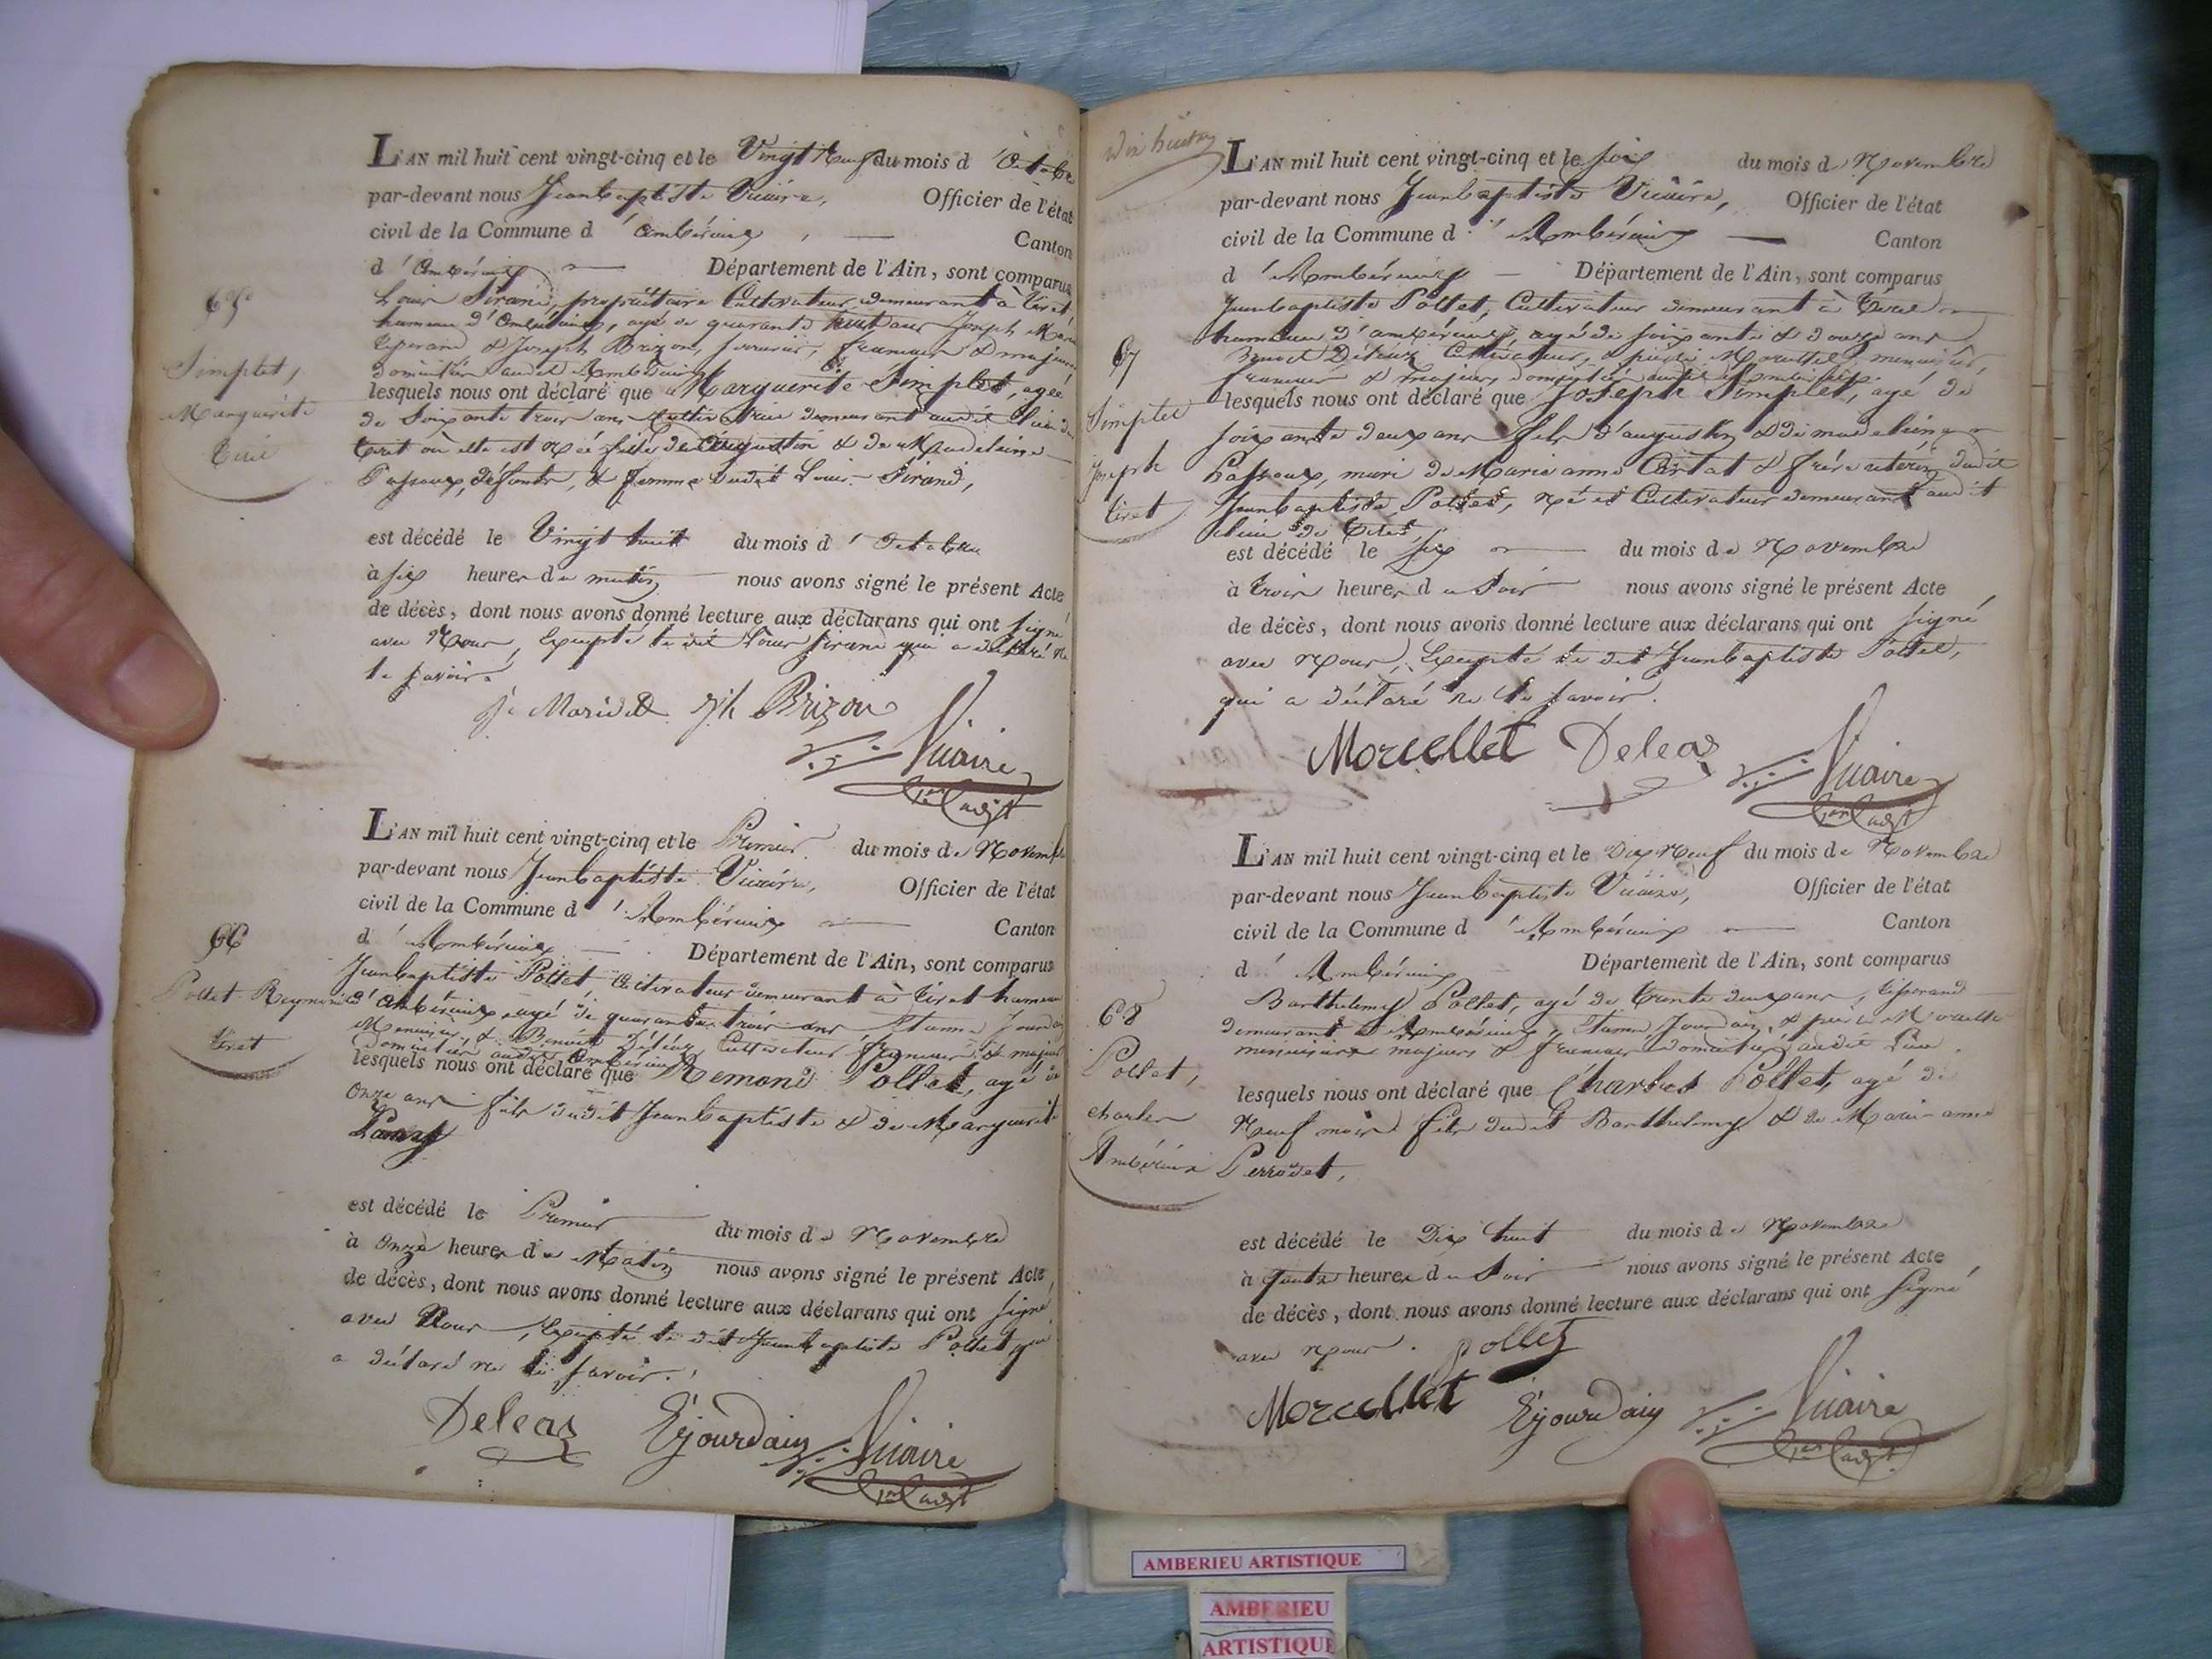 L'AN mil huit cent vingt-cinq et le Vingt Neuf du mois d'Octobre
par-devant nous Jeanbaptiste Vicaire, Officier de l'état
civil de la Commune d'Ambérieux, Canton
d'Ambérieux Département de l'Ain, sont comparus
65
Simplet,
Marguerite
Tiret
Louis Sirand, propriétaire Cultivateur demeurant à Tiret
hameau d'Ambérieux, agé de quarante huit ans Joseph
tisserand & Joseph Brizon, serrurier, francais & majeurs
domiciliés audit Ambérieux
lesquels nous ont déclaré que Marguerite Simplet, agée
de Soixante trois ans Cultivatrice demeurant audit lieu de
tiret où elle est Née fille de Augustin & de Madelaine
Passoux, défunts, & femme dudit Louis Sirand,
est décédé le Vingt huit du mois d'Octobre
à six heures du matin nous avons signé le présent Acte
de décès, dont nous avons donné lecture aux déclarans qui ont signé
avec Nous, Excepté le dit Louis Sirand qui a déclaré ne
le savoir.
Brizon
Vicaire
L'AN mil huit cent vingt-cinq et le Premier du mois de Novembre
par-devant nous Jeanbaptiste Vicaire, Officier de l'état
civil de la Commune d'Ambérieux Canton
d'Ambérieux Département de l'Ain, sont comparus
66
Pollet Reymond
tiret
Jeanbaptiste Pollet, Cultivateur demeurant à tiret hameau
d'Ambérieux agé de quarante trois ans Jourdain
Menuisier, & Benoit Cultivateur francais & majeurs
domiciliés audit Ambérieux
lesquels nous ont déclaré que Remond Pollet, agé de
onze ans fils dudit Jeanbaptiste & de Marguerite
est décédé le Premier du mois de Novembre
à Onze heures du Matin nous avons signé le présent Acte
de décès, dont nous avons donné lecture aux déclarans qui ont signé
avec Nous, Excepté le dit Jeanbaptiste Pollet qui
a déclaré ne le savoir.
Deleaz Ejourdain Vicaire
Dix huit
L'AN mil huit cent vingt-cinq et le six du mois de Novembre
par-devant nous Jeanbaptiste Vicaire, Officier de l'état
civil de la Commune d'Ambérieux Canton
d'Ambérieux Département de l'Ain, sont comparus
67
Simplet
Joseph
tiret
Jeanbaptiste Pollet, Cultivateur demeurant à Tiret
hameau d'ambérieux, agé de soixante & douze ans
Benoit Cultivateur, & pierre menuisier,
francais & majeurs domiciliés audit Ambérieux
lesquels nous ont déclaré que Joseph Simplet, agé de
soixante deux ans fils d'augustin & de madelaine
Passoux, mari de Marie anne & frère utérin dudit
Jeanbaptiste Pollet, né et Cultivateur demeurant audit
lieu de Tiret,
est décédé le six du mois de Novembre
à trois heures du Soir nous avons signé le présent Acte
de décès, dont nous avons donné lecture aux déclarans qui ont signé
avec nous, Excepté le dit Jeanbaptiste Pollet,
qui a déclaré ne le savoir.
Morcellet Deleaz Vicaire
L'AN mil huit cent vingt-cinq et le Dix Neuf du mois de Novembre
par-devant nous Jeanbaptiste Vicaire, Officier de l'état
civil de la Commune d'Ambérieux Canton
d'Ambérieux Département de l'Ain, sont comparus
68
Pollet,
charles
Ambérieux
Barthelemy Pollet, agé de trente deux ans, tisserand
demeurant à Ambérieux, Jourdain, & pierre
menuisiers majeurs & francais domiciliés audit Lieu.
lesquels nous ont déclaré que Charles Pollet, agé de
Neuf mois fils dudit Barthelemy & de Marie-anne
Perrodet,
est décédé le Dix huit du mois de Novembre
à quatre heures du Soir nous avons signé le présent Acte
de décès, dont nous avons donné lecture aux déclarans qui ont signé
avec nous. pollet
Morcellet Ejourdain Vicaire
AMBERIEU ARTISTIQUE
AMBERIEU
ARTISTIQUE